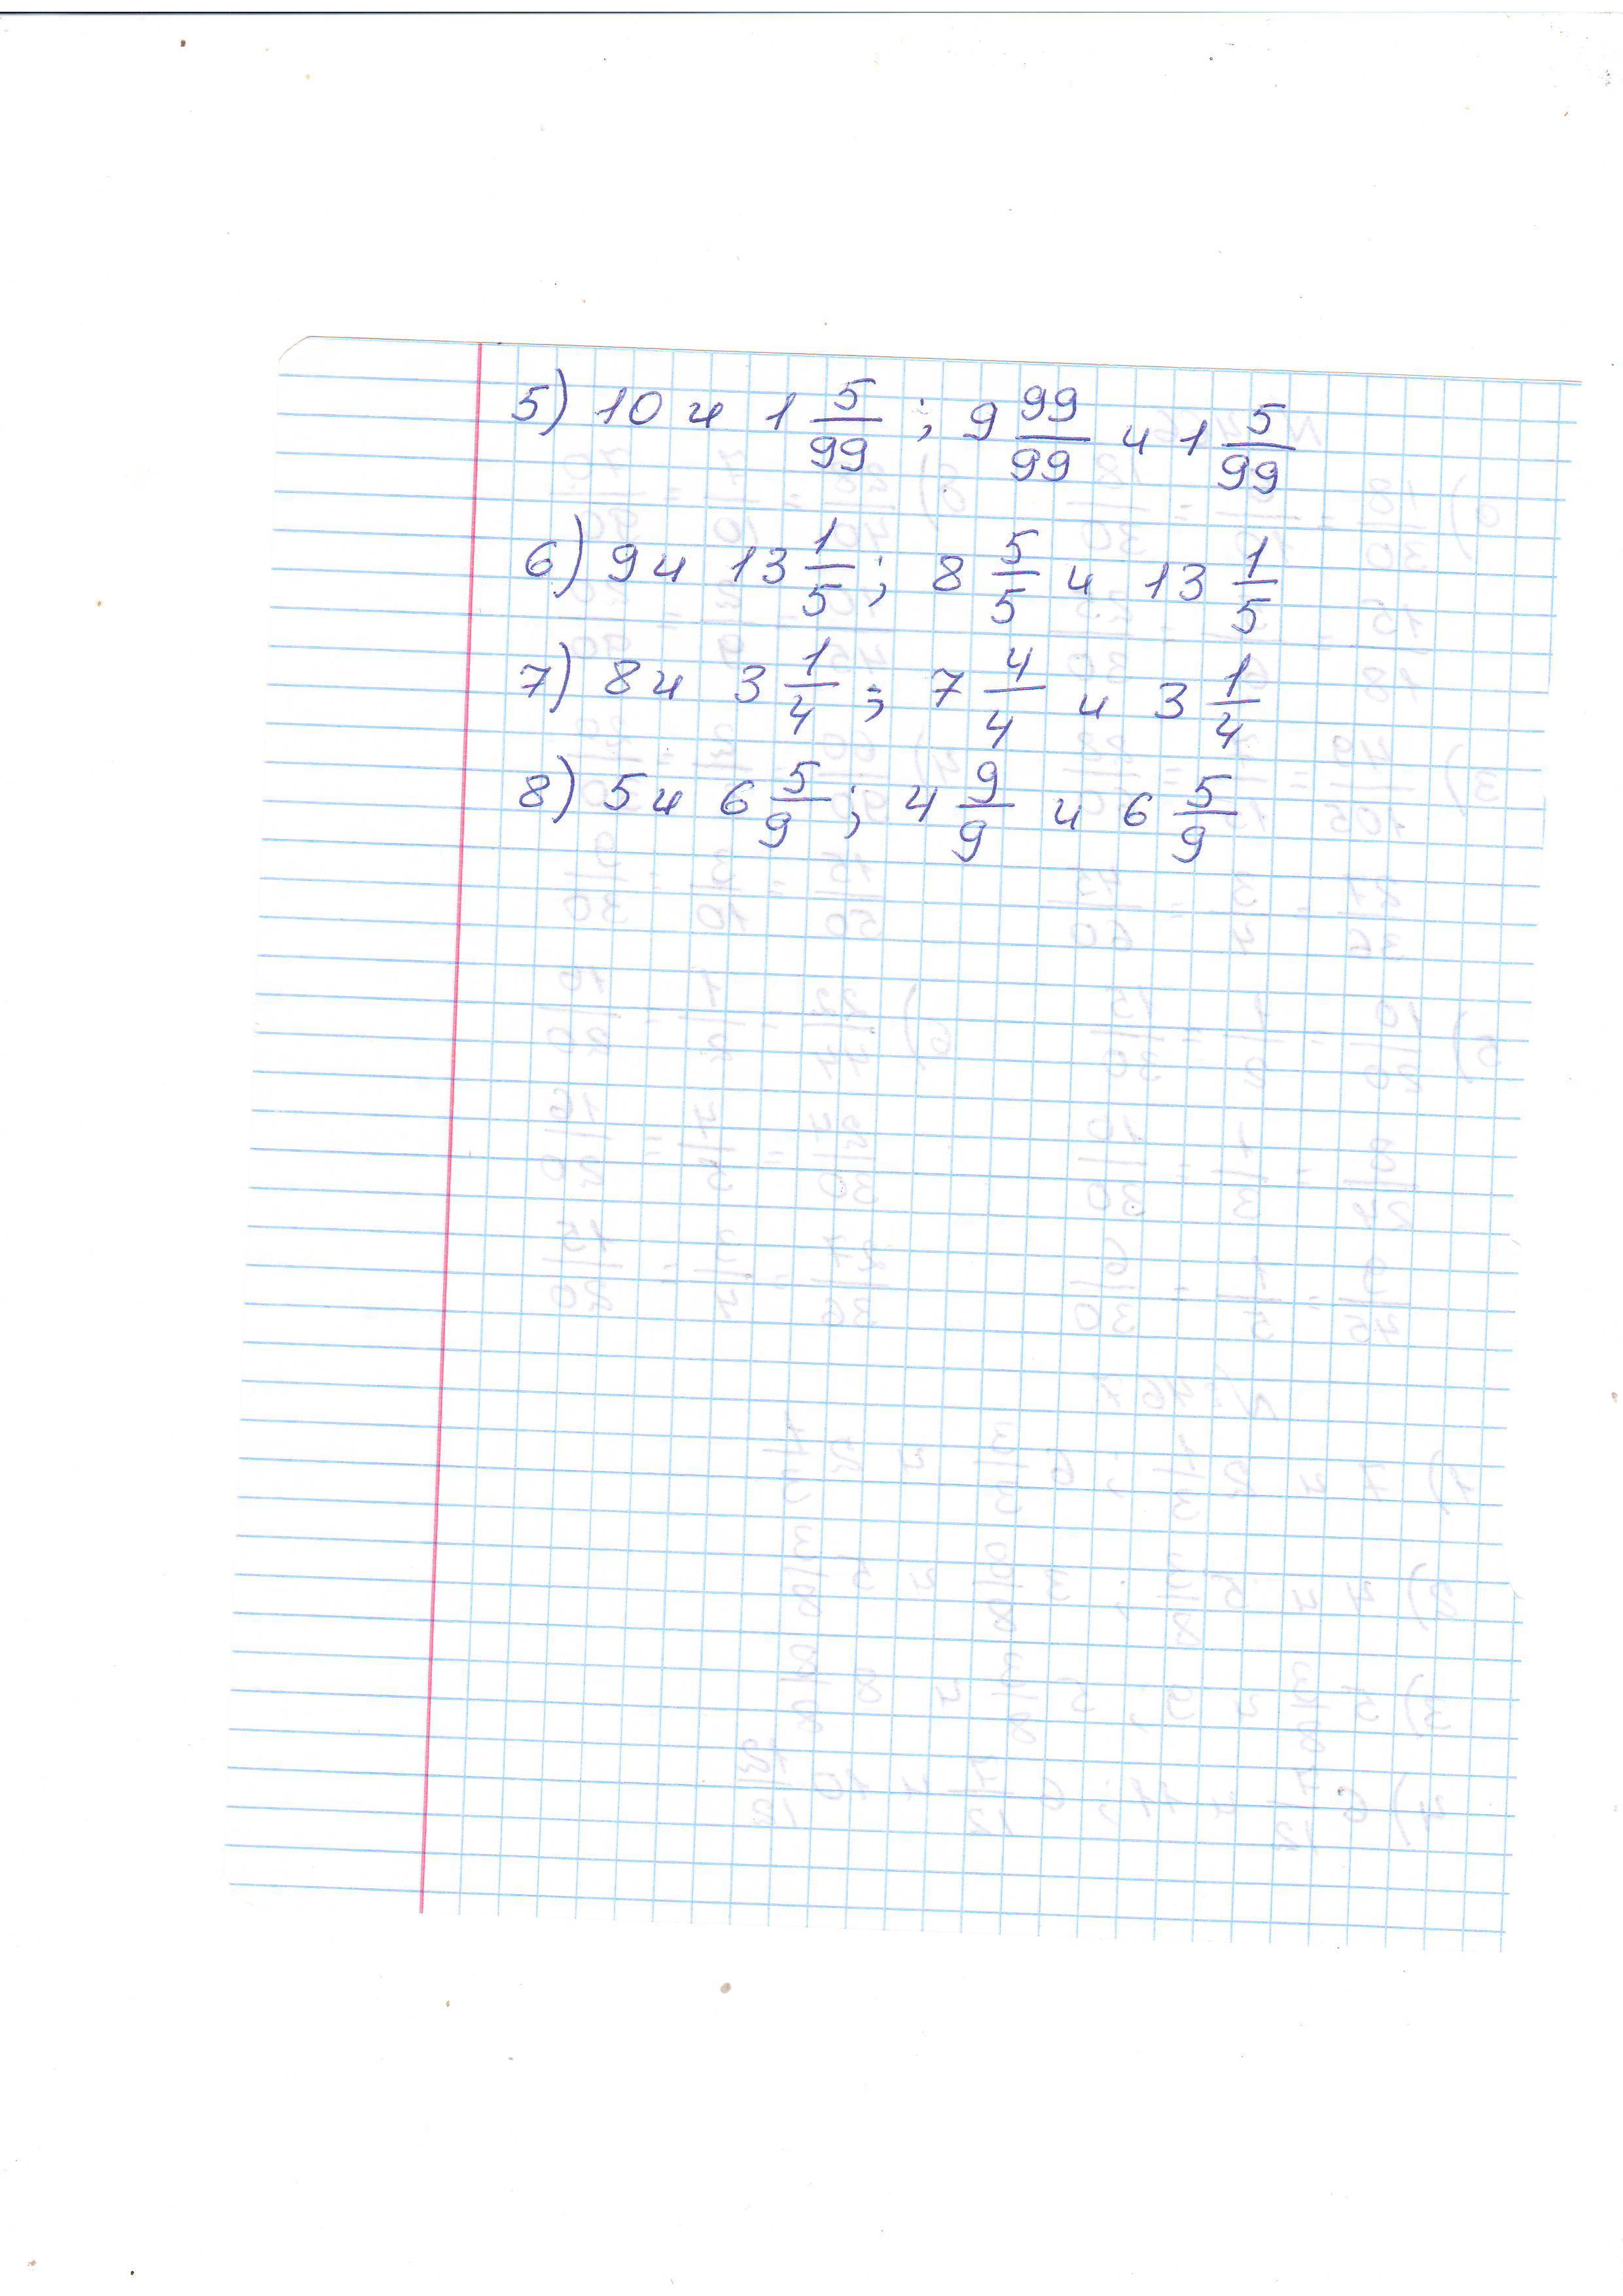 5) 10 и 1 5/99 ; 9 99/99 и 1 5/99
6) 9 и 13 1/5 ; 8 5/5 и 13 1/5
7) 8 и 3 1/4 ; 7 4/4 и 3 1/4
8) 5 и 6 5/9 ; 4 9/9 и 6 5/9